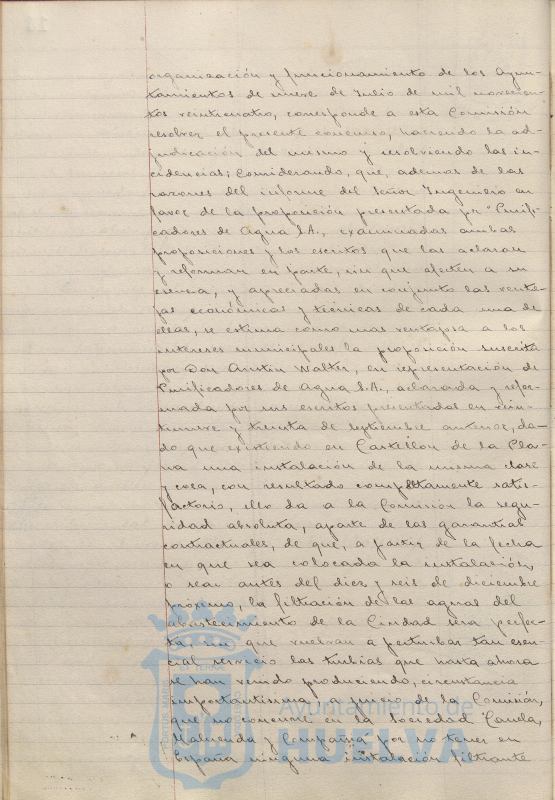 organización y funcionamiento de los Ayun-
tamientos de nueve de Julio de mil novecien-
tos veinticuatro, corresponde a esta Comisión
resolver el presente concurso, haciendo la ad-
judicación del mismo y resolviendo las in-
cidencias; Considerando, que, ademas de las
razones del informe del Señor Ingeniero en
favor de la proposición presentada por "Purifi-
cadores de Agua S.A., examinadas ambas
proposiciones y los escritos que las aclaran
y reforman en parte, sin que afecten a su
esencia, y apreciadas en conjunto las venta-
jas económicas y técnicas de cada una de
ellas, se estima como mas ventajosa a los
intereses municipales la proposición suscrita
por Don Walter, en representación de
Purificadores de Agua S.A., aclarada y refor-
mada por sus escritos presentados en vein-
tinueve y treinta de septiembre anterior, da-
do que existiendo en Castellón de la Pla-
na una instalación de la misma clase
y casa, con resultado completamente satis-
factorio, ello da a la Comisión la segu-
ridad absoluta, aparte de las garantias
contractuales, de que, a partir de la fecha
en que sea colocada la instalación,
o sea antes del diez y seis de diciembre
próximo, la filtración de las aguas del
abastecimiento de la Ciudad será perfec-
ta, sin que vuelvan a perturbar tan esen-
cial servicio las turbias que hasta ahora
se han venido produciendo, circustancia
importantisima a juicio de la Comisión,
que no concurre en la Sociedad
Maluenda y Compañia por no tener en
España ninguna instalación filtrante
Ayuntamiento de
HUELVA
PORTUS MARIS
ET TERRÆ